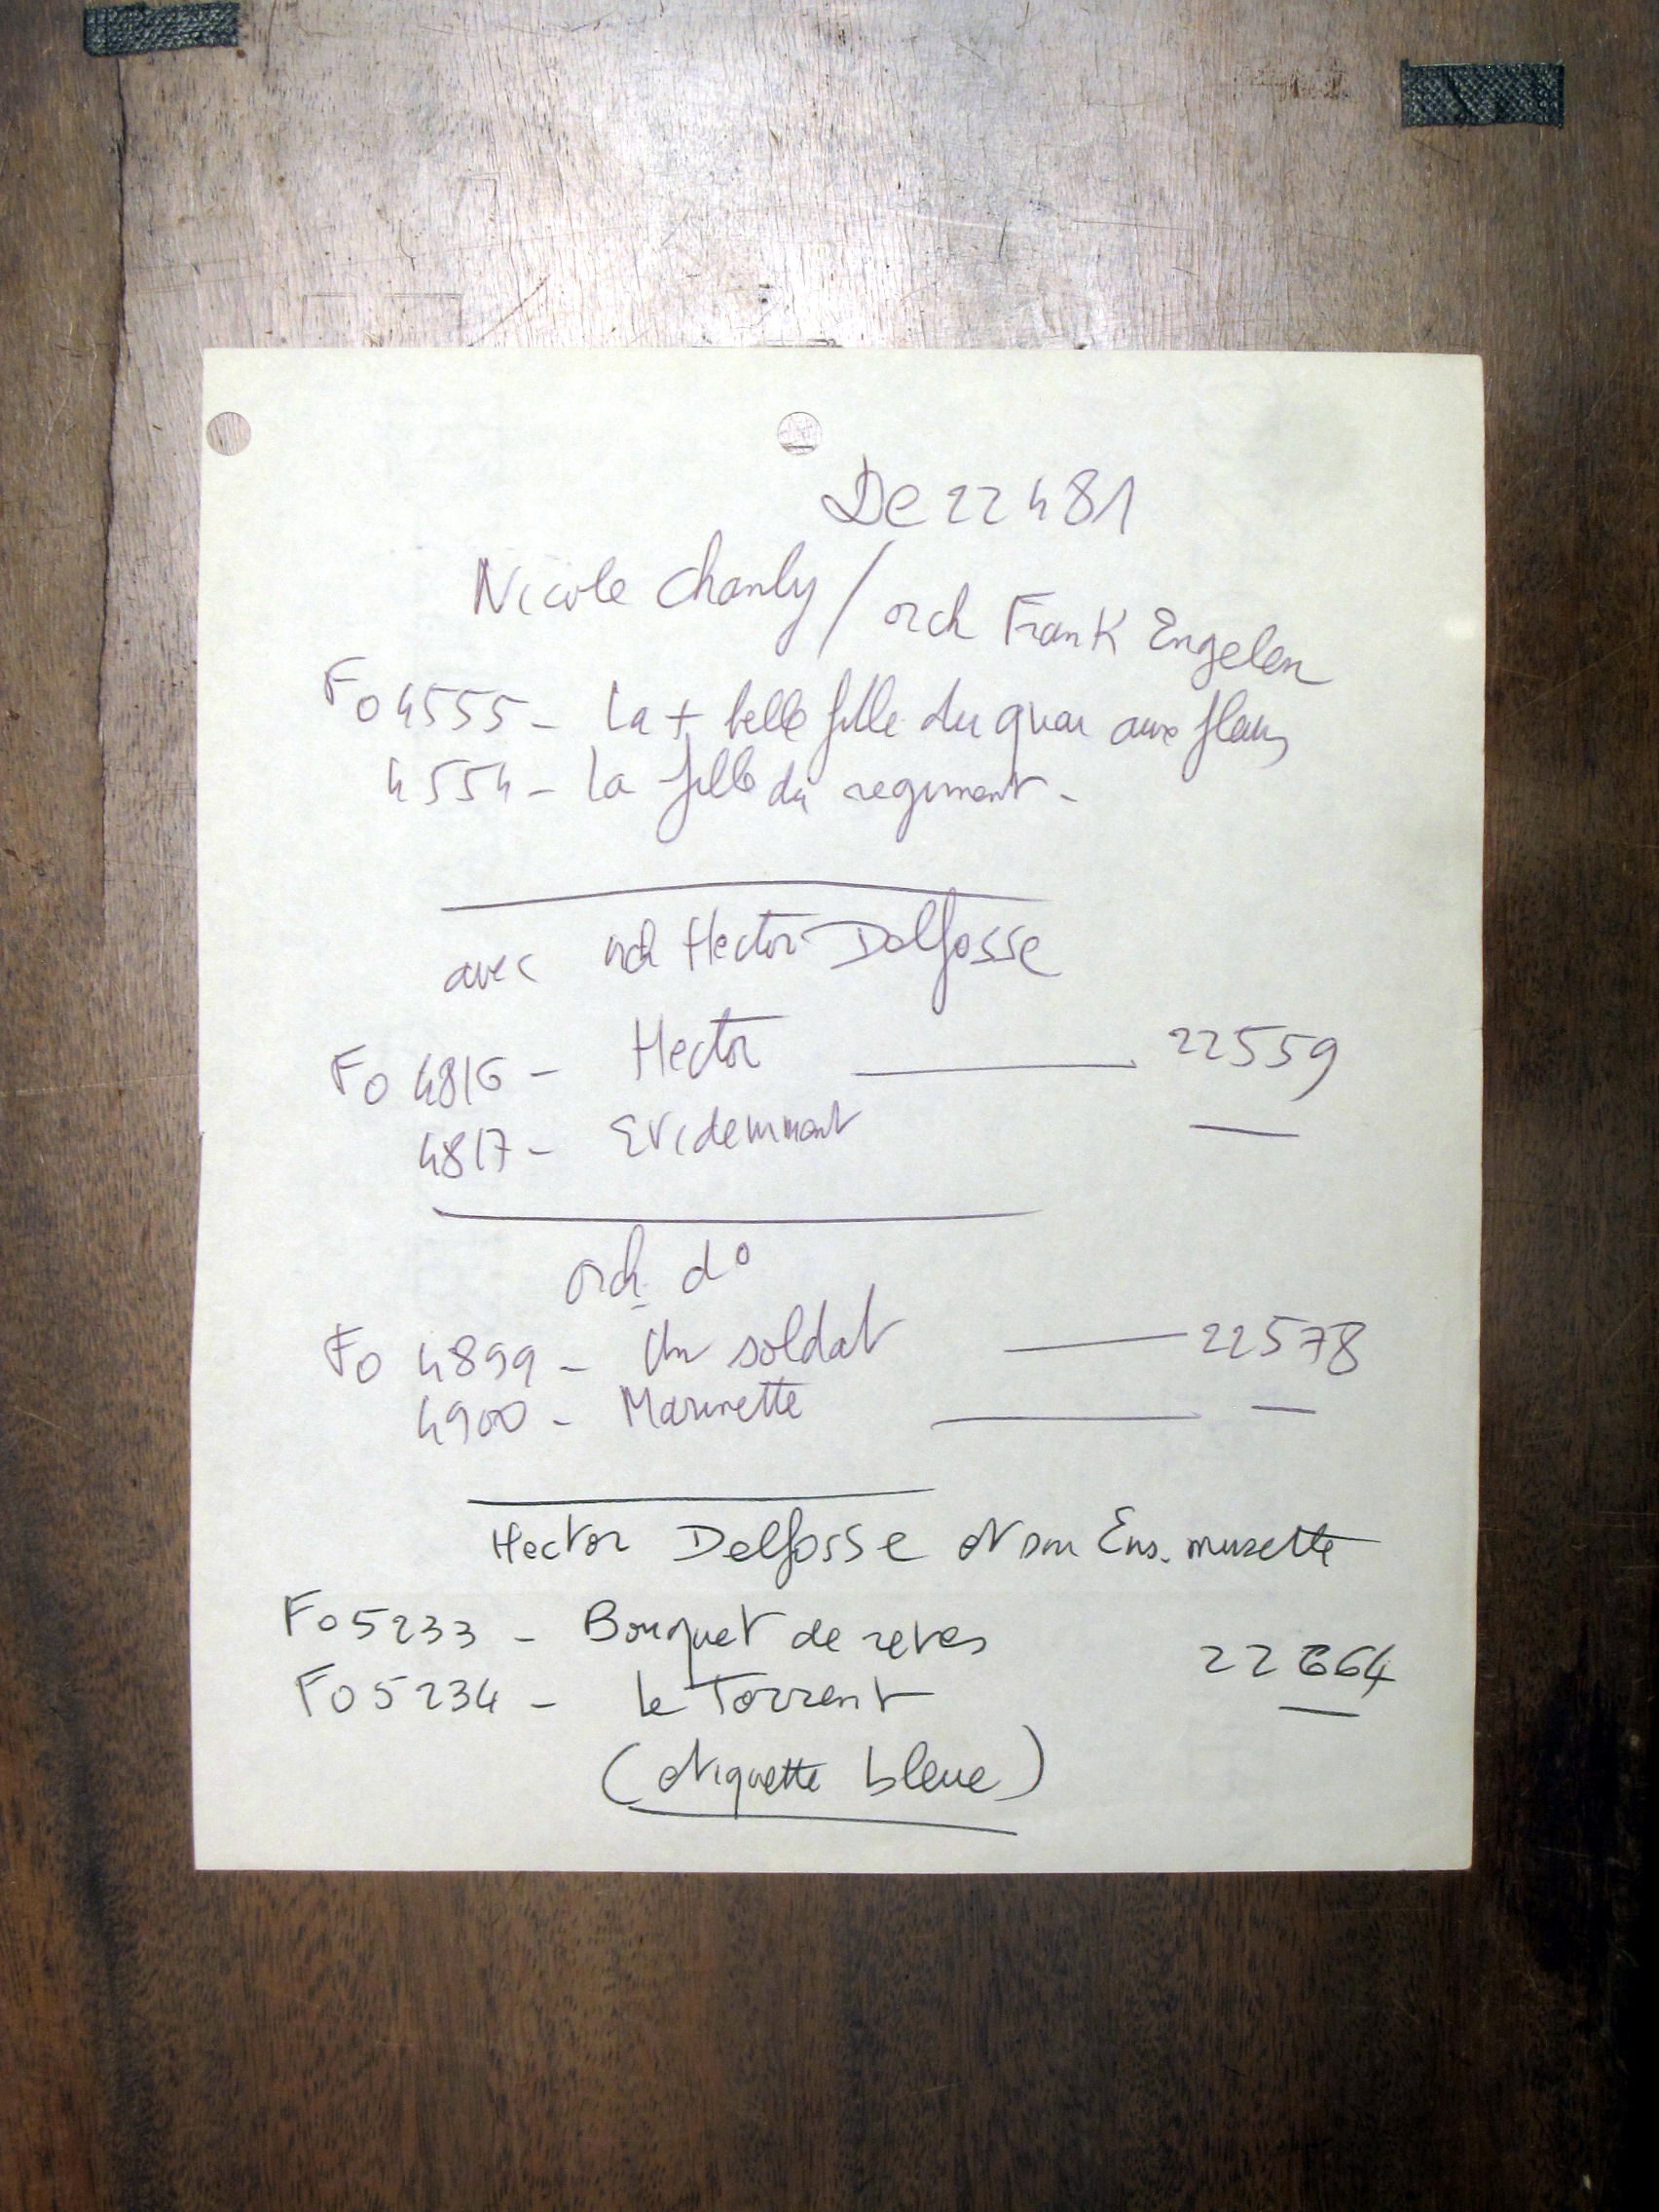 De 22481
Nicole Chanly / orch Frank Engelen
Fo 4555 - La + belle fille du quai aux fleurs
4554 - La fille du regiment -
avec orch Hector Delfosse
Fo 4816 - Hector — 22559
4817 - Evidemment —
orch. d°
Fo 4899 - Un soldat — 22578
4900 - Marinette — —
Hector Delfosse et son Ens. musette
Fo 5233 - Bouquet de reves
22664
Fo 5234 - Le Torrent —
(etiquette bleue)